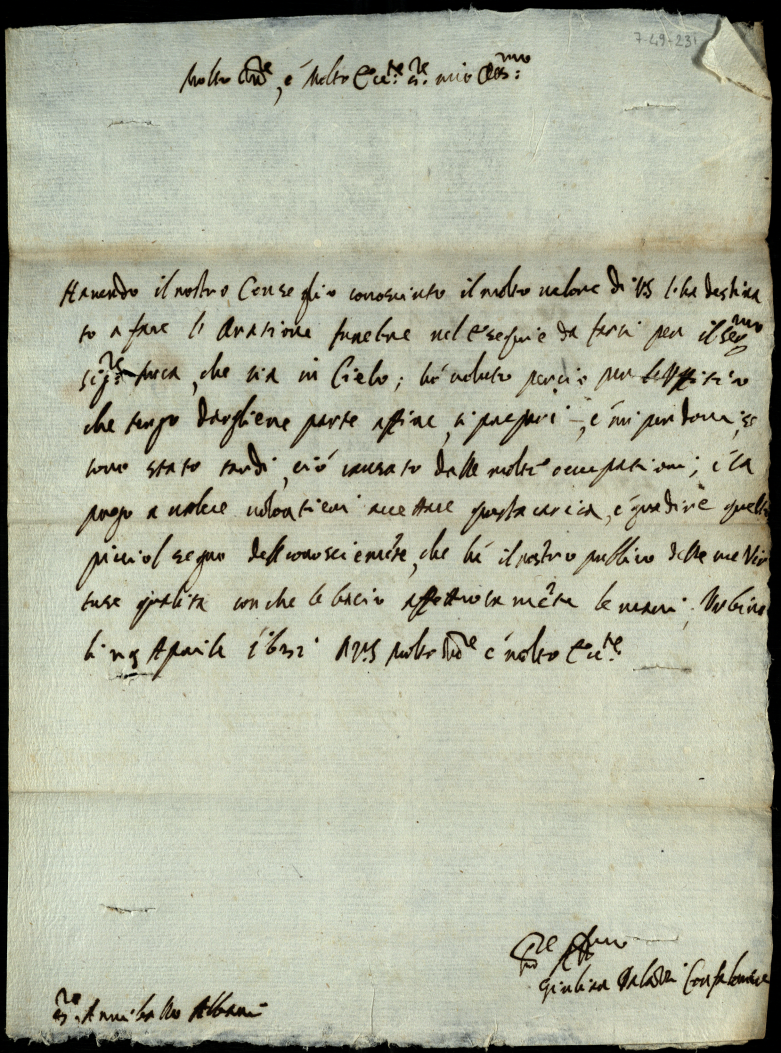 7-49-231
Molto Ill.re, é Molto Ecc.te S.re mio Oss.mo
Havendo il nostro Conseglio conosciuto il molto valore di VS l'ha destina
to a fare l'Oratione funebre nel Esequie da farsi per il Ser.mo
Sig.re Duca, che sia in Cielo; hó voluto perciò per
che tengo dargliene parte affine, si prepari, é mi perdoni, se
sono stato tardi, ció causato dalle molte occupationi; é la
prego a volere volontieri accettare questa carica, é gradire quell
picciol segno dell conoscienza, che há il nostro publico delle sue Vir
tuse qualitá con che le bacio affettuosamente le mani; Urbino
li Aprile 1631 D VS Molto Ill.re é molto Ecc.te
Giulian Confaloniere
S.re Anniballo Albani